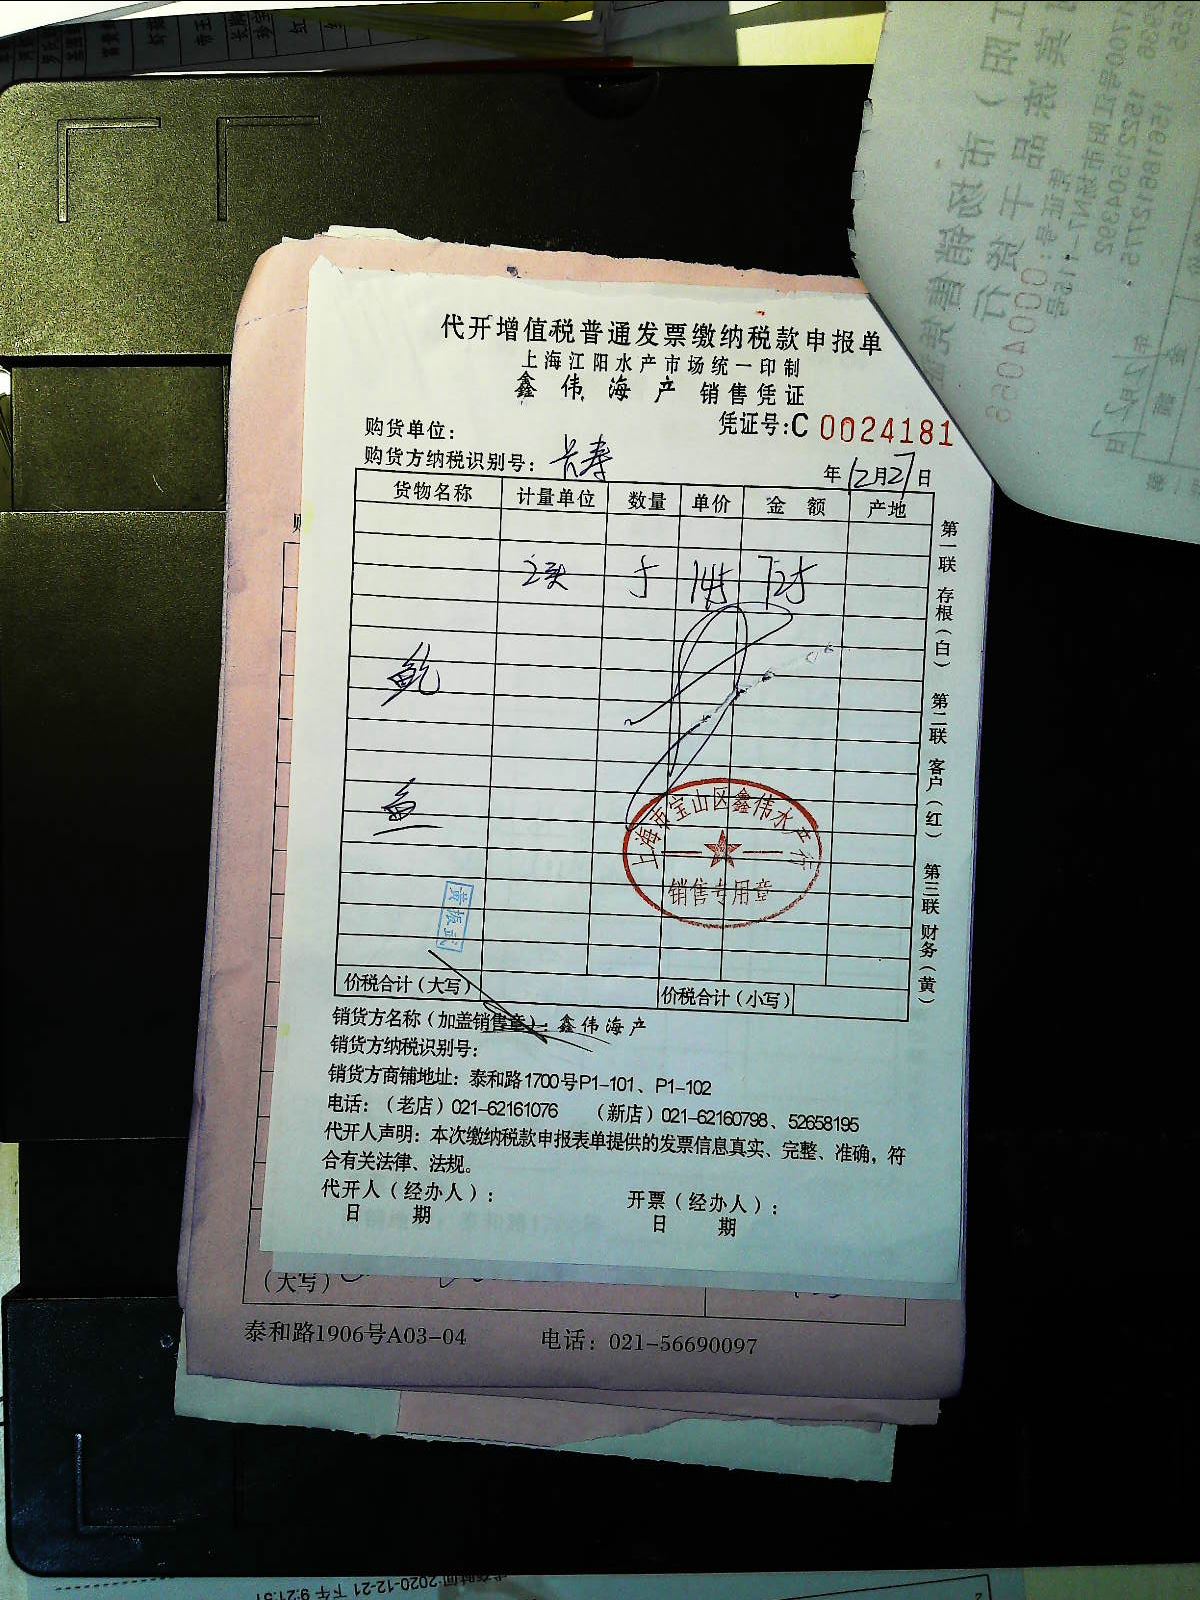 代开增值税普通发票缴纳税款申报单
上海江阳水产市场统一印制
鑫伟海产 销售凭证
凭证号:C 0024181
购货单位:
购货方纳税识别号: 长寿
年12月27日
货物名称 计量单位 数量 单价 金额 产地
2头 5 145 725
鲍
鱼
上海市宝山区鑫伟水产行
销售专用章
黄振武
价税合计(大写) 价税合计(小写)
销货方名称(加盖销售章): 鑫伟海产
销货方纳税识别号:
销货方商铺地址: 泰和路1700号P1-101、P1-102
电话:(老店)021-62161076 (新店)021-62160798、52658195
代开人声明:本次缴纳税款申报表单提供的发票信息真实、完整、准确,符
合有关法律、法规。
代开人(经办人): 开票(经办人):
日 期 日 期
第一联 存根(白) 第二联 客户(红) 第三联 财务(黄)
(大写)
泰和路1906号A03-04 电话:021-56690097
2020-12-21 下午 9:21:51